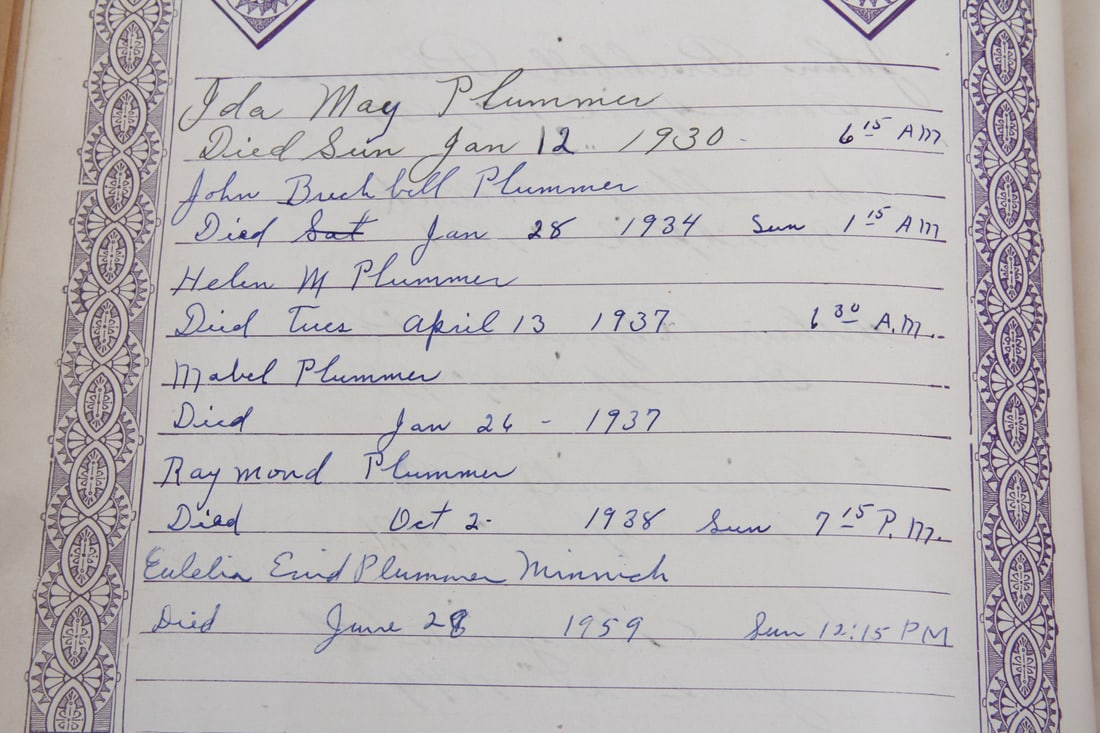 Ida May Plummer
Died Sun Jan 12 1930 - 6 15 AM
John Brechbill Plummer
Died Sat Jan 28 1934 Sun 1 15 AM
Helen M Plummer
Died Tues April 13 1937 6 30 A.M.
Mabel Plummer
Died Jan 26 - 1937
Raymond Plummer
Died Oct 2 - 1938 Sun 7 15 P.M.
Eulelia Enid Plummer Minnich
Died June 28 1959 Sun 12:15 PM